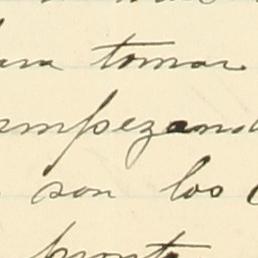 tomar
empezand
son los
pronto